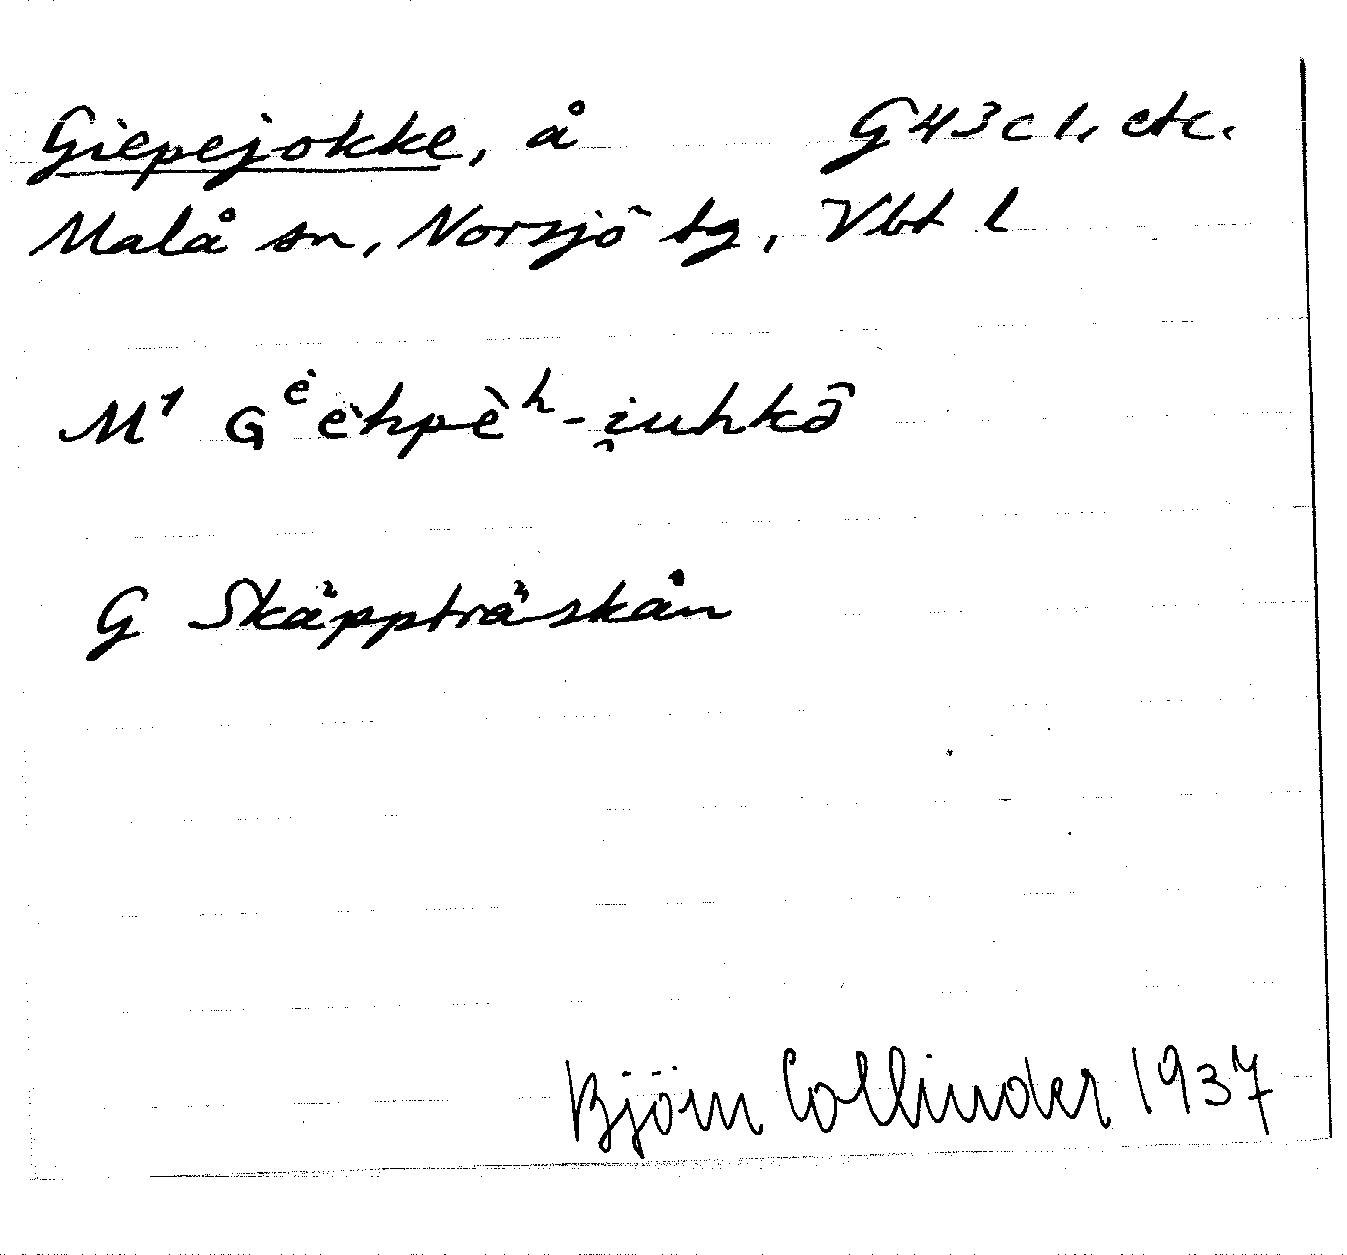 Giepejokke, å G43c1, etc.
Malå sn, Norsjö tg, Vbt l
M¹ Gᵉ̀èhpèʰ-i̯uhkā̂
G Skäppträskån
Björn Collinder 1937